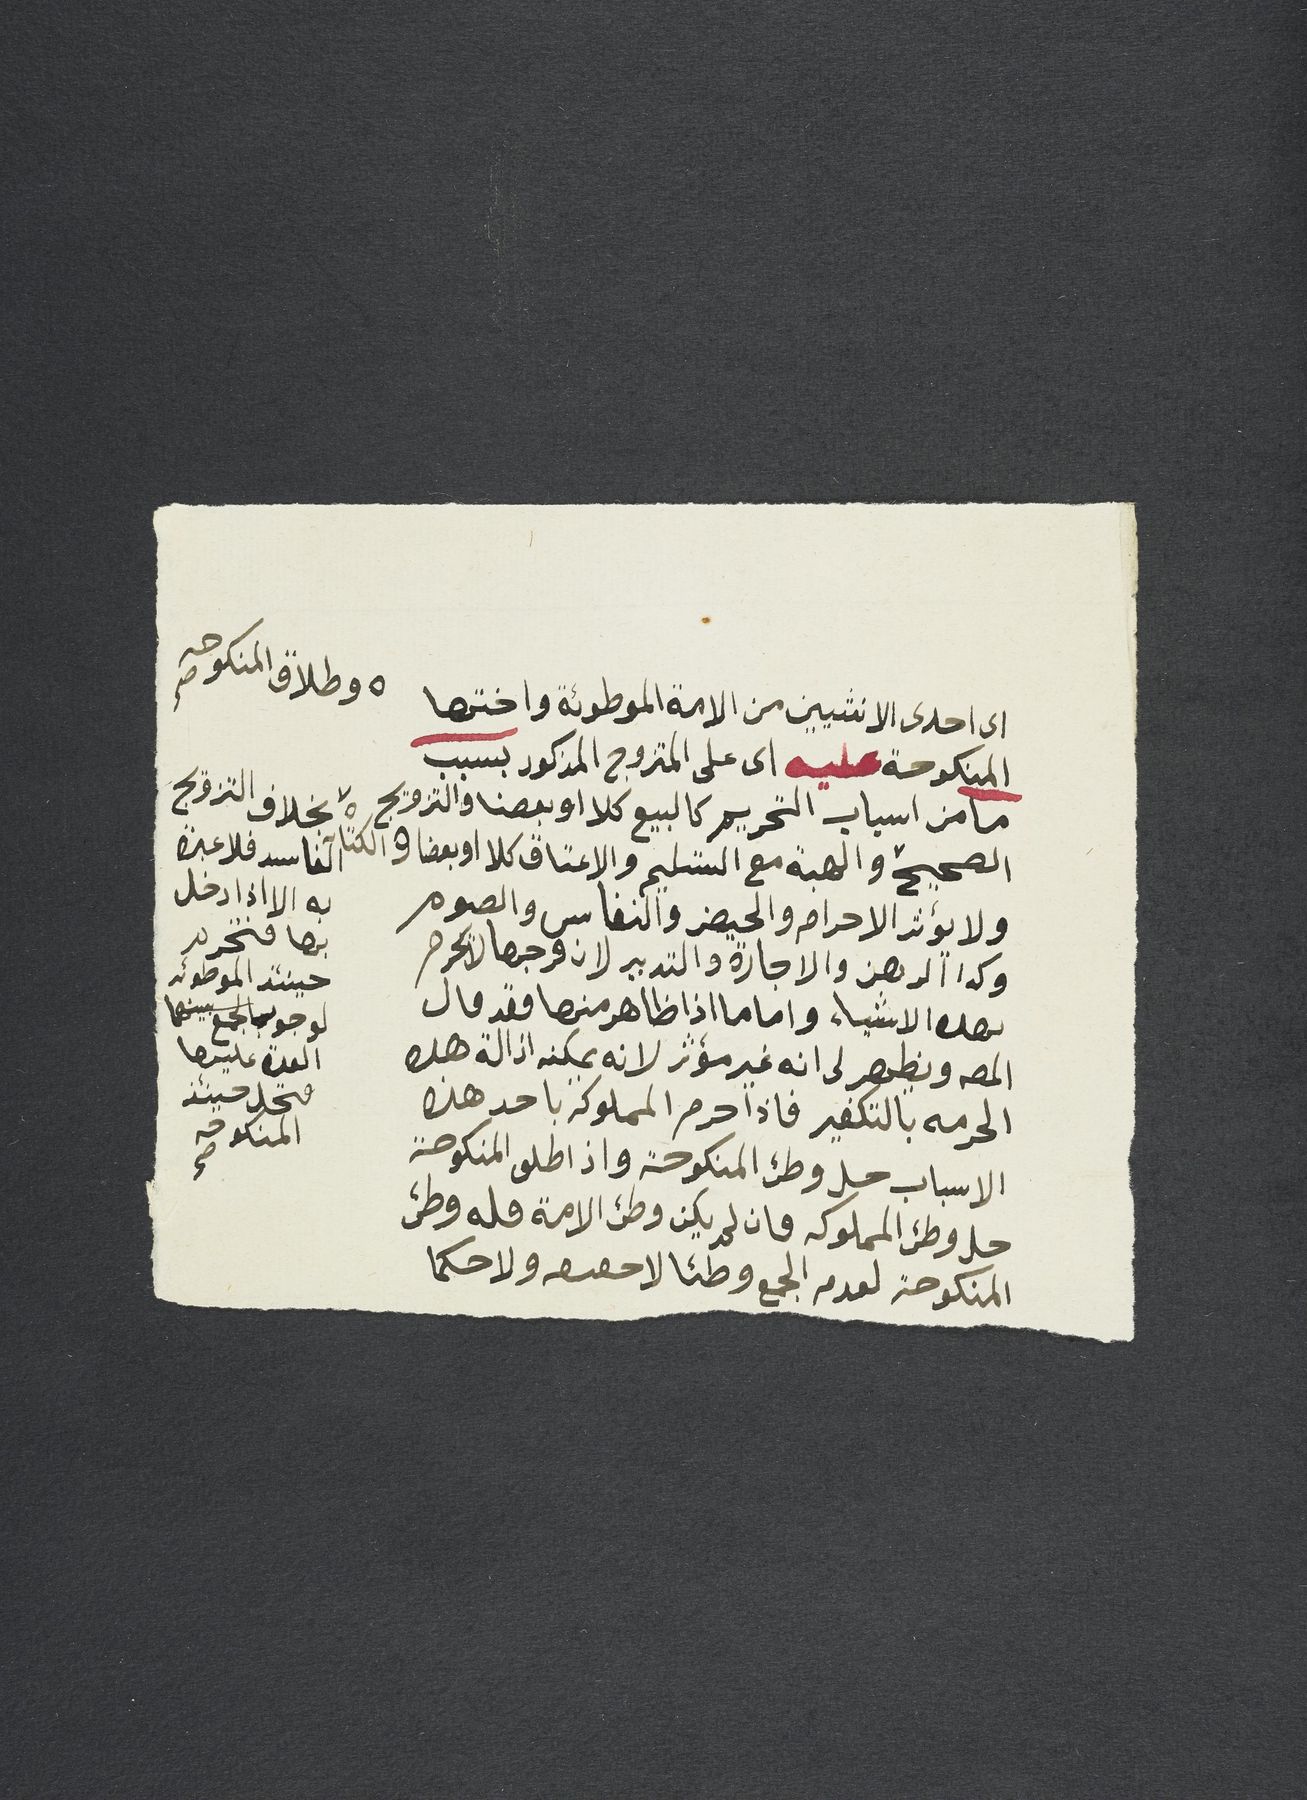 اى احدى الانثيين من الامة الموطوئة واختها
المنكوحة عليه اى على المتزوج المذكور بسبب
ما من اسباب التحريم كالبيع كلا او بعضا والتزويج
الصحيح والهبة مع التسليم والاعتاق كلا او بعضا والكتابة
ولا يؤثر الاحرام والحيض والنفاس والصوم
وكذا الرهن والاجارة والتدبير لان فرجها لا يحرم
بهذه الاشياء واما ما اذا ظاهر منها فقد قال
المصه ويظهر لى انه غير مؤثر لانه يمكنه ازالة هذه
الحرمه بالتكفير فاذا حرم المملوكة باحد هذه
الاسباب حل وطئ المنكوحة واذا طلق المنكوحة
حل وطئ المملوكه فان لم يكن وطئ الامة فله وطئ
المنكوحة لعدم الجمع وطئا لا حقيقه ولا حكما
٥ وطلاق المنكوحه
صح
٧ بخلاف التزويج
الفاسد فلا عبرة
به الا اذا دخل
بها فتحرم
حينئذ الموطوئه
لوجوب الجمع بينهما
العدة عليها
فتحل حينئذ
المنكوحه
صح